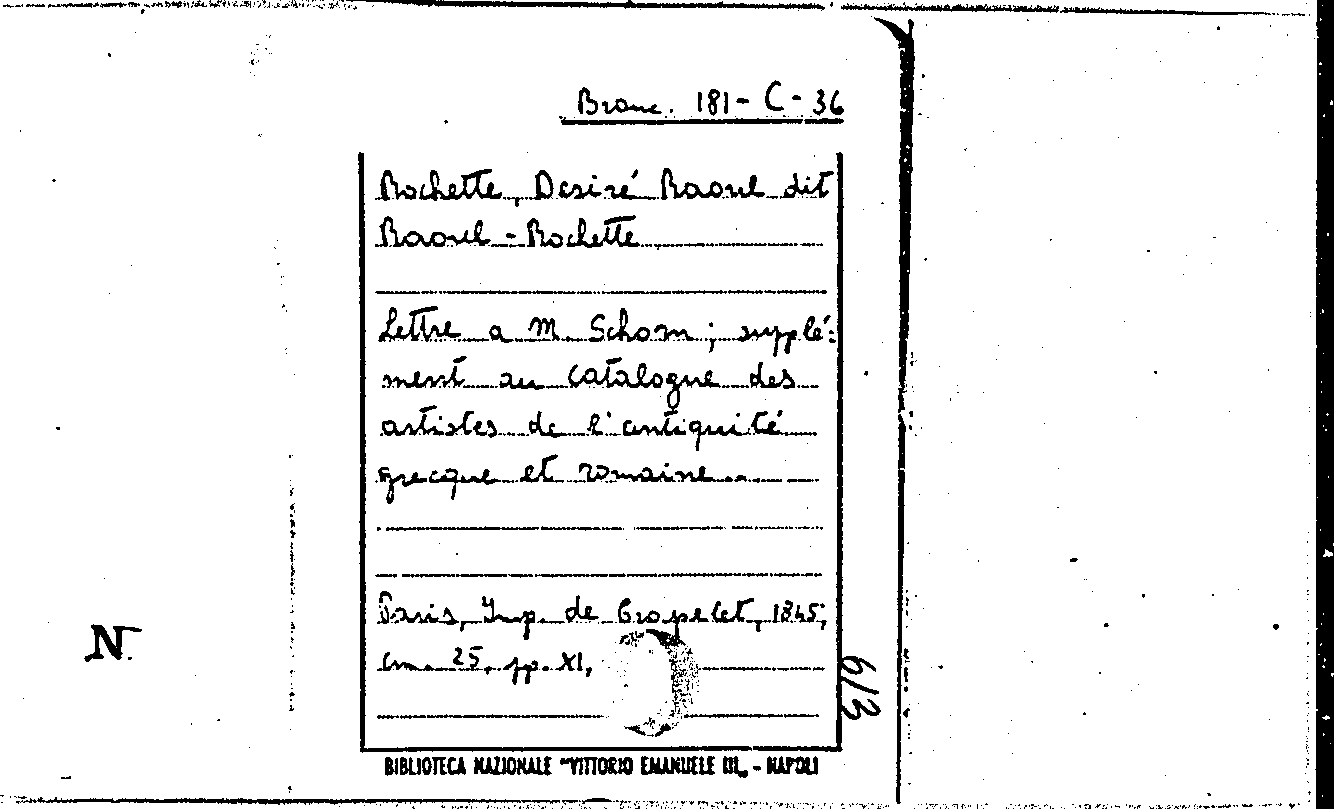 Branc. 181-C-36
Rochette, Desiré Raoul dit
Raoul-Rochette
Lettre a M. Schorn; supplé=
ment au catalogue des
artistes de l'antiquité
grecque et romaine...
Paris, Imp. de Crapelet, 1845;
cm. 25, pp. XI,
N
6/3
BIBLIOTECA NAZIONALE "VITTORIO EMANUELE III„ - NAPOLI